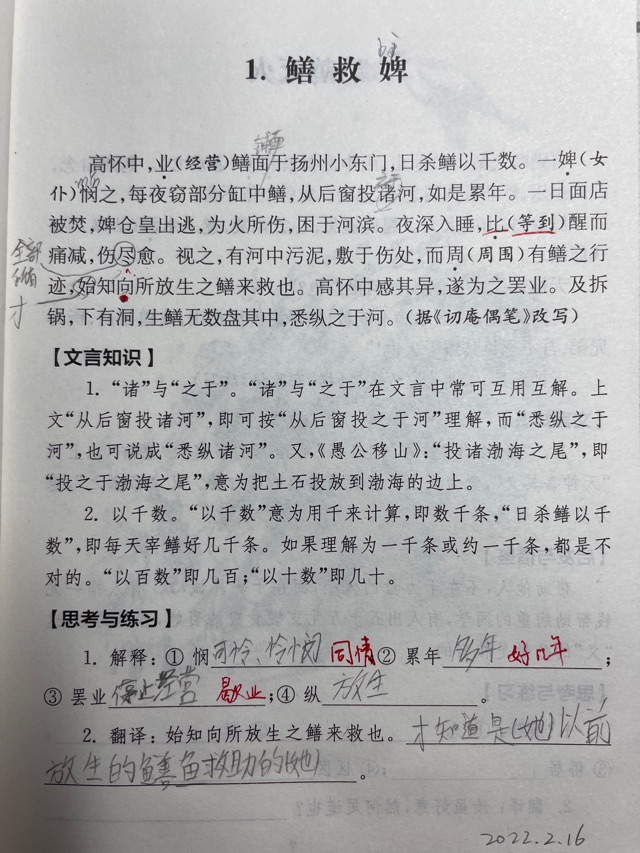 1. 鳝 救 婢
高怀中,业(经营)鳝面于扬州小东门,日杀鳝以千数。一婢(女
仆)悯之,每夜窃部分缸中鳝,从后窗投诸河,如是累年。一日面店
被焚,婢仓皇出逃,为火所伤,困于河滨。夜深入睡,比(等到)醒而
痛减,伤尽愈。视之,有河中污泥,敷于伤处,而周(周围)有鳝之行
全部
迹,始知向所放生之鳝来救也。高怀中感其异,遂为之罢业。及拆
才
锅,下有洞,生鳝无数盘其中,悉纵之于河。(据《切庵偶笔》改写)
【文言知识】
1. “诸”与“之于”。“诸”与“之于”在文言中常可互用互解。上
文“从后窗投诸河”,即可按“从后窗投之于河”理解,而“悉纵之于
河”,也可说成“悉纵诸河”。又,《愚公移山》:“投诸渤海之尾”,即
“投之于渤海之尾”,意为把土石投放到渤海的边上。
2. 以千数。“以千数”意为用千来计算,即数千条,“日杀鳝以千
数”,即每天宰鳝好几千条。如果理解为一千条或约一千条,都是不
对的。“以百数”即几百;“以十数”即几十。
【思考与练习】
1. 解释:① 悯可怜、怜悯 同情② 累年 多年 好几年;
③ 罢业停止经营 歇业;④ 纵 放生。
2. 翻译:始知向所放生之鳝来救也。才知道是(她)以前
放生的鳝鱼救助的(她)。
2022.2.16